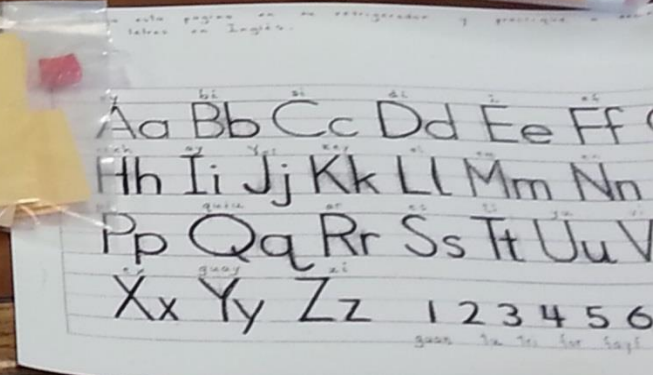 esta pagina en refrigerador y practique
letras en Inglés.
bi si di i ef
Aa Bb Cc Dd Ee Ff
ay key em en
Hh Ii Jj Kk Ll Mm Nn
ar es ti yu
Pp Qq Rr Ss Tt Uu V
guay zi
Xx Yy Zz 1 2 3 4 5 6
guan tu tri for fayf